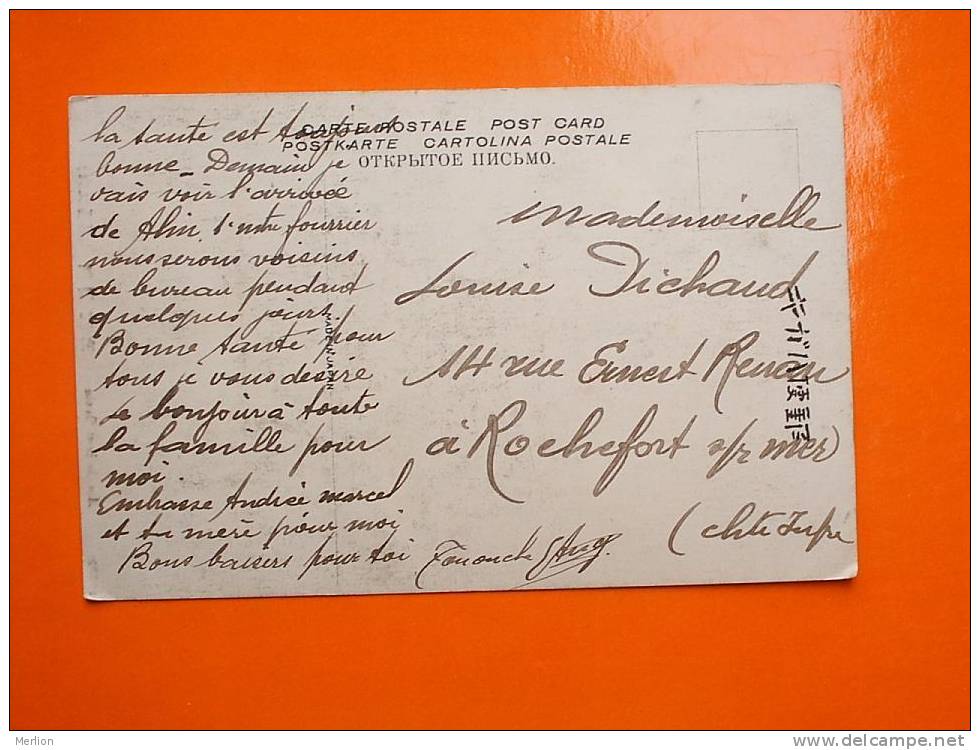 CARTE POSTALE POST CARD
POSTKARTE CARTOLINA POSTALE
ОТКРЫТОЕ ПИСЬМО.
la santé est toujours
bonne – Demain je
vais voir l'arrivée
de Alin, l'autre fourrier
nous serons voisins
de bureau pendant
quelques jours.
Bonne santé pour
tous je vous désire
Le bonjour à toute
la famille pour
moi
Embrasse Andrée marcel
et ta mère pour moi
Bons baisers pour toi
MADE IN JAPAN
Mademoiselle
Louise Dichaud
14 rue Ernest Renan
à Rochefort s/r mer
(chte Infre
Merlion